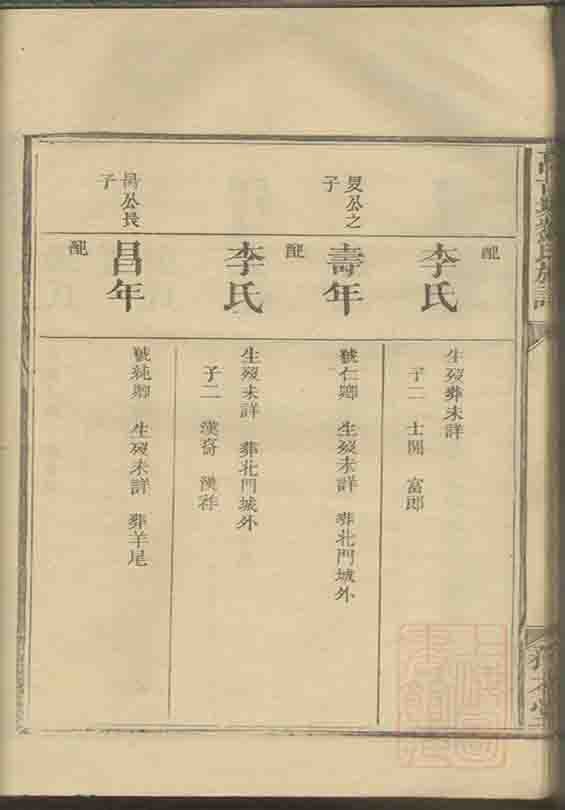 配
李氏
生歿葬未詳
子二 士開 富郎
夏公之子
壽年
號仁鄉 生歿未詳 葬北門城外
配
李氏
生歿未詳 葬北門城外
子二 漢奇 漢祥
公長子
昌年
號純卿 生歿未詳 葬羊尾
配
氏族譜